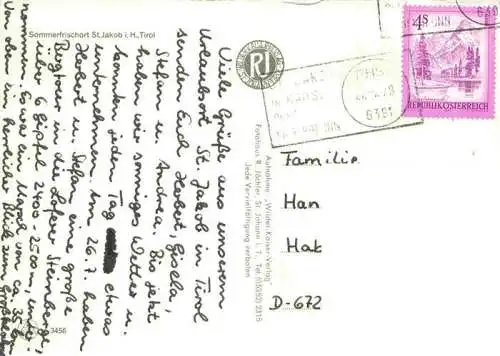 Sommerfrischort St. Jakob i. H., Tirol
Viele Grüße aus unserem
Urlaubsort St. Jakob in Tirol
senden Euch Herbert, Gisela,
Stefan u. Andrea. Bis jetzt
haben wir sonniges Wetter u.
konnten jeden Tag etwas
unternehmen. Am 26.7. haben
Herbert u. Stefan eine große
Bergtour in die Loferer Steinberge,
über 6 Gipfel 2400-2500m, unter-
nommen. Es war ein Marsch von ca 35 km
Von oben ein herrlicher Blick zum Großglockner
3456
RJ
Aufnahme „Wilder-Kaiser-Verlag“
Fotohaus R. Jöchler, St. Johann i. T., Tel. (05352) 2315
Jede Vervielfältigung verboten
4S
REPUBLIK ÖSTERREICH
6391
Familie
Han
Hak
D-672